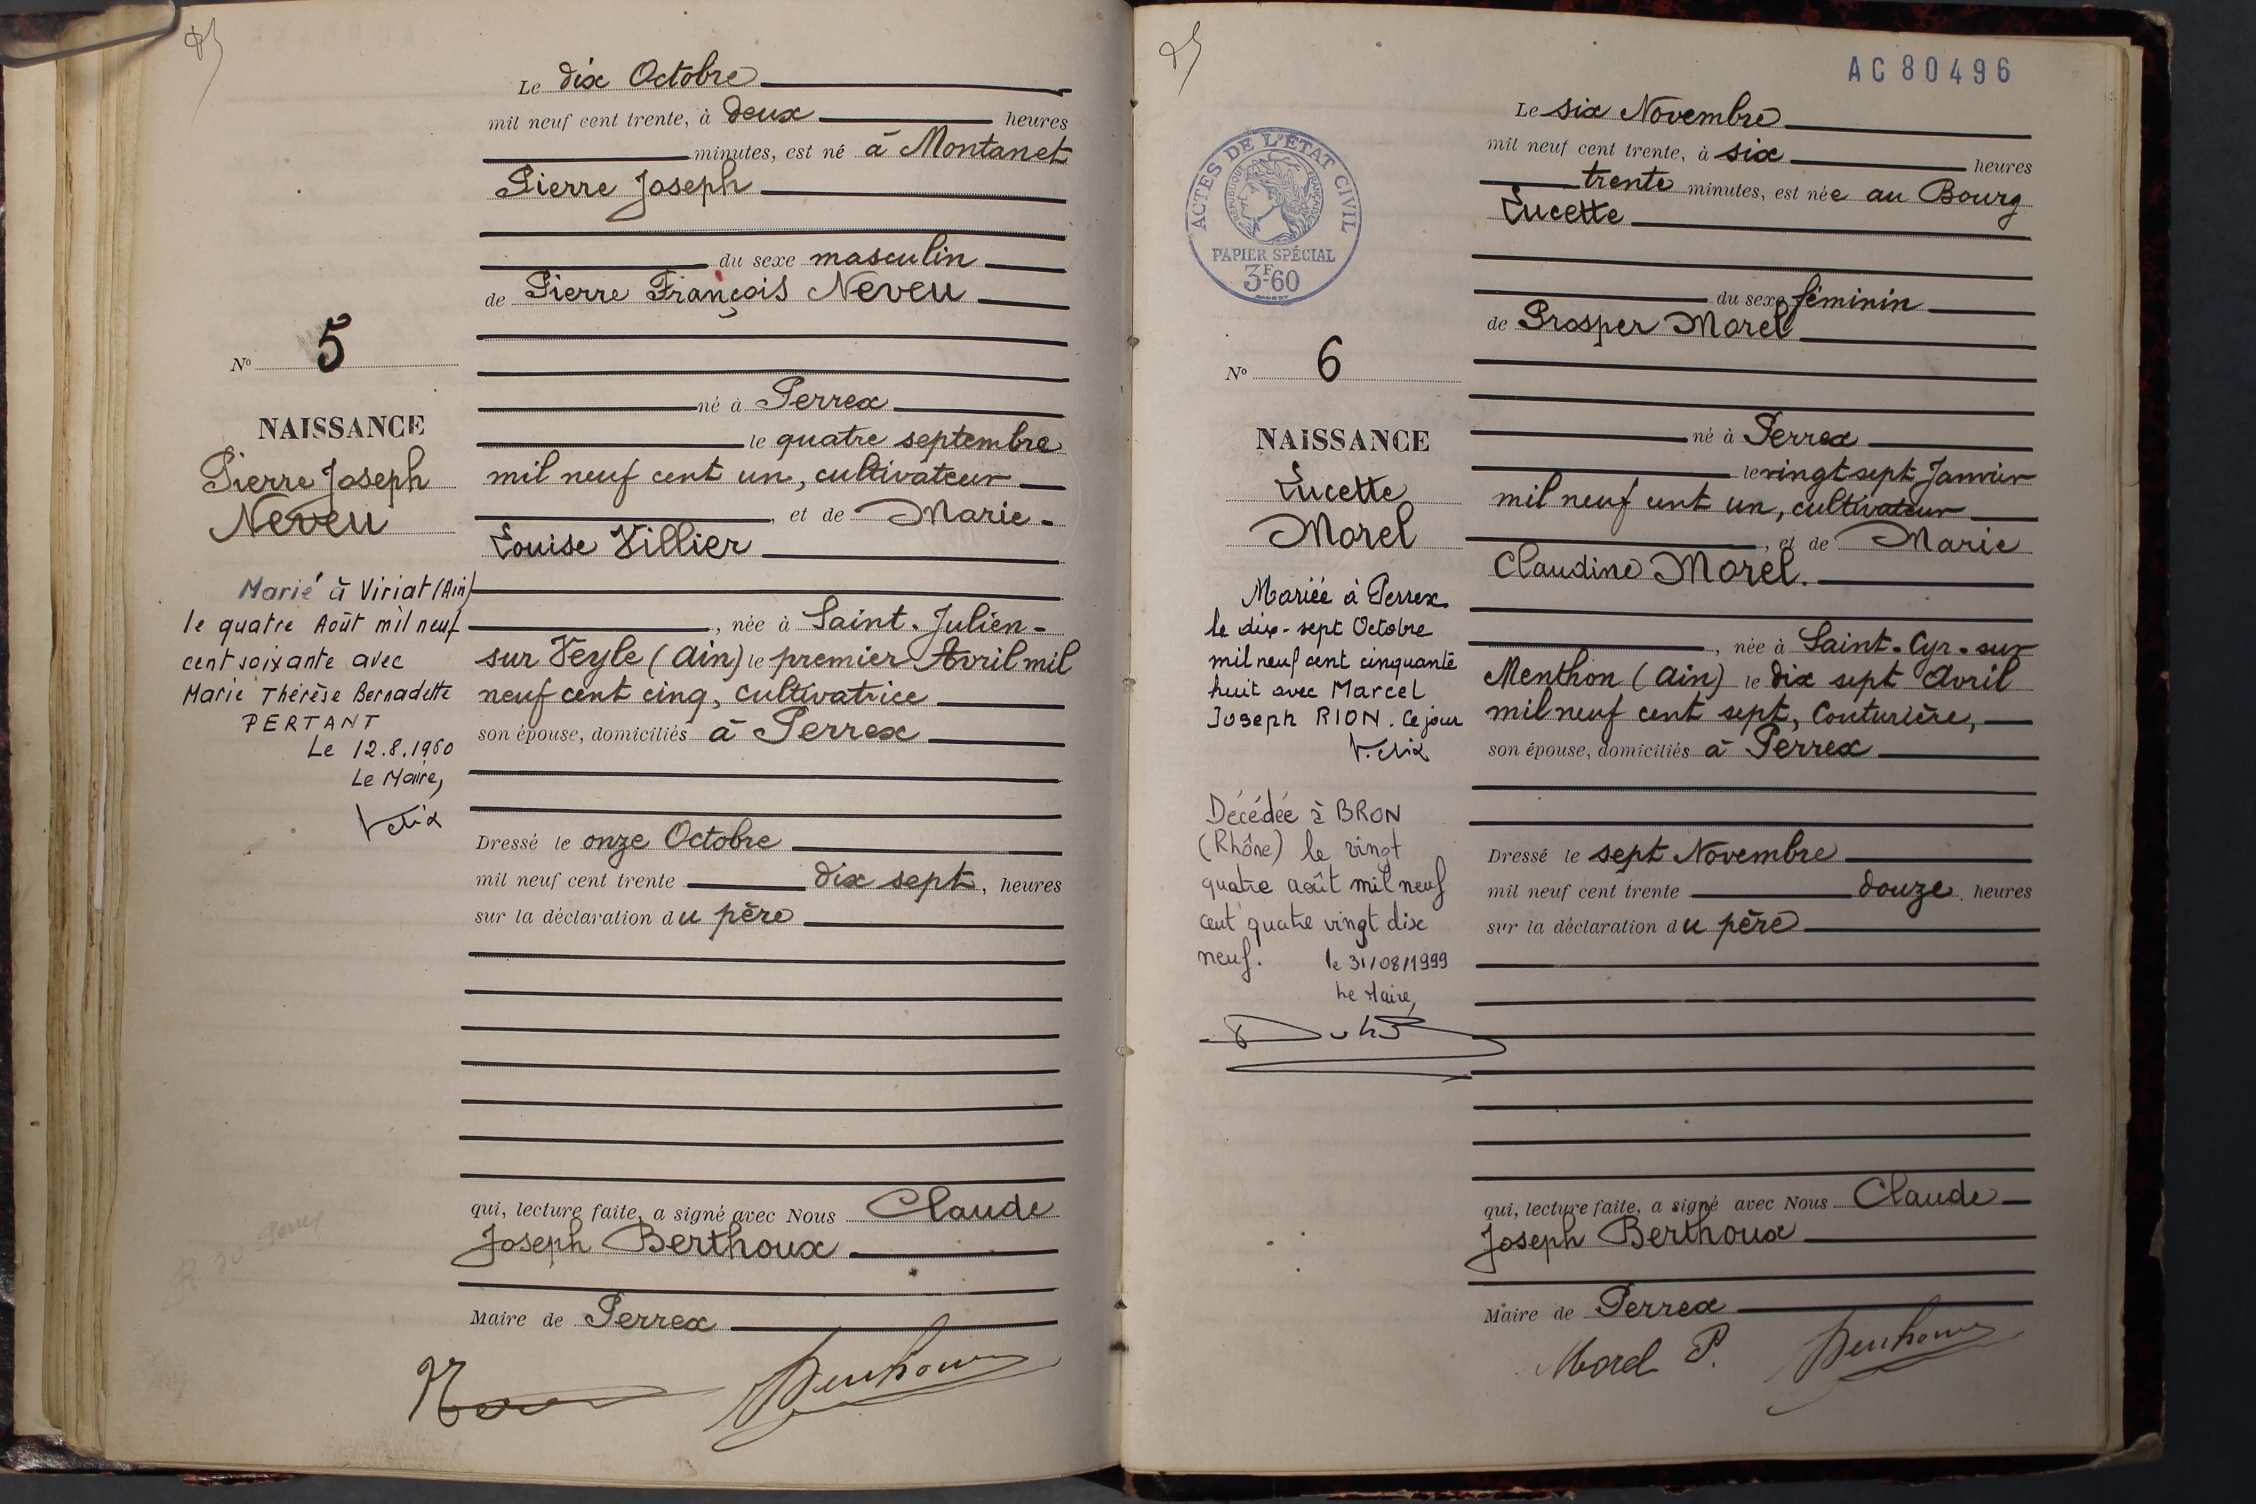 Le dix Octobre
mil neuf cent trente, à deux heures
minutes, est né à Montanet
Pierre Joseph
du sexe masculin
de Pierre François Neveu
né à Perrex
le quatre septembre
mil neuf cent un, cultivateur
, et de Marie-
Louise Villier
, née à Saint-Julien-
sur Veyle (Ain) le premier Avril mil
neuf cent cinq, cultivatrice
son épouse, domiciliés à Perrex
Dressé le onze Octobre
mil neuf cent trente dix sept, heures
sur la déclaration du père
qui, lecture faite, a signé avec Nous Claude
Joseph Berthoux
Maire de Perrex
No 5
NAISSANCE
Pierre Joseph
Neveu
Marié à Viriat (Ain)
le quatre Août mil neuf
cent soixante avec
Marie Thérèse Bernadette
PERTANT
Le 12.8.1960
Le Maire,
R 30 Perrex
AC 80496
ACTES DE L'ÉTAT CIVIL
RÉPUBLIQUE FRANÇAISE
PAPIER SPÉCIAL
3F60
Le six Novembre
mil neuf cent trente, à six heures
trente minutes, est née au Bourg
Lucette
du sexe féminin
de Prosper Morel
né à Perrex
le vingt sept Janvier
mil neuf cent un, cultivateur
, et de Marie
Claudine Morel.
, née à Saint-Cyr-sur
Menthon (Ain) le dix sept Avril
mil neuf cent sept, Couturière,
son épouse, domiciliés à Perrex
Dressé le sept Novembre
mil neuf cent trente douze heures
sur la déclaration du père
qui, lecture faite, a signé avec Nous Claude
Joseph Berthoux
Maire de Perrex
Morel P.
No 6
NAISSANCE
Lucette
Morel
Mariée à Perrex
le dix-sept Octobre
mil neuf cent cinquante
huit avec Marcel
Joseph RION. Ce jour
Décédée à BRON
(Rhône) le vingt
quatre août mil neuf
cent quatre vingt dix
neuf. le 31/08/1999
Le Maire,